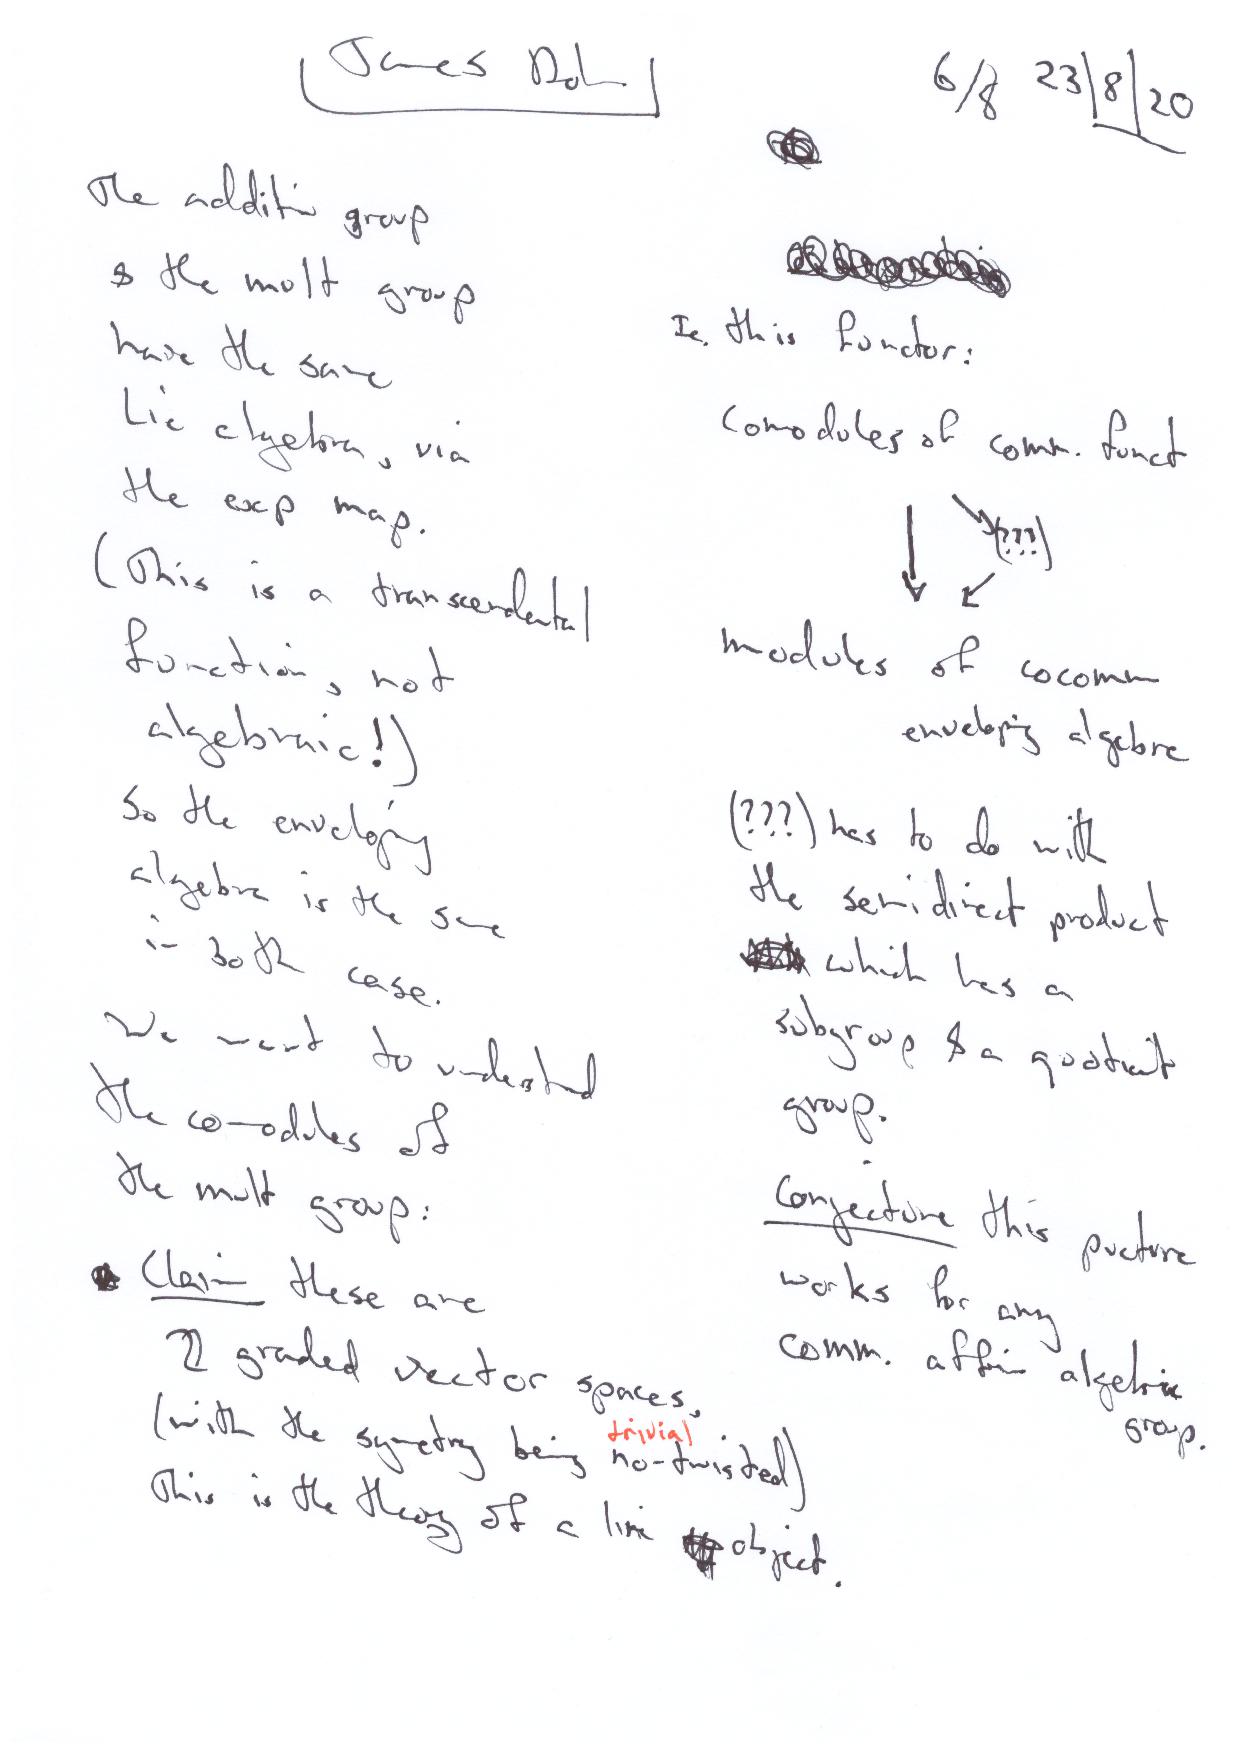 James Dol
6/8 23/8/20
The additiv group
& the mult group
have the same
Lie algebra, via
the exp map.
(This is a transcendental
function, not
algebraic!)
So the enveloping
algebra is the same
in both case.
We want to understand
the comodules of
the mult group:
Claim these are
ℤ graded vector spaces,
(with the symetry being trivial no-twisted)
This is the theory of a line object.
Ie. this functor:
comodules of comm. funct
(???)
modules of cocomm
enveloping algebra
(???) has to do with
the semidirect product
which has a
subgroup & a quotient
group.
Conjecture this picture
works for any
comm. affin algebraic
group.